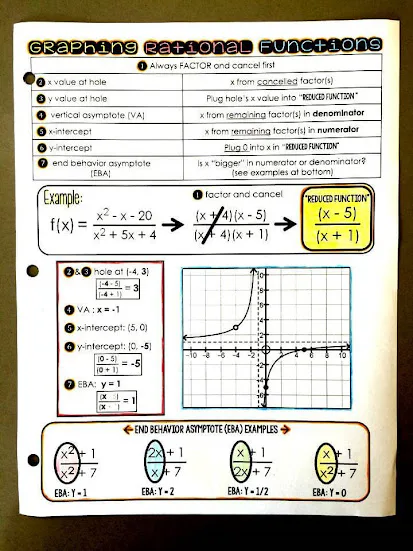 GRAPHING RATIONAL FUNCTIONS
1 Always FACTOR and cancel first
2 x value at hole x from cancelled factor(s)
3 y value at hole Plug hole's x value into "REDUCED FUNCTION"
4 vertical asymptote (VA) x from remaining factor(s) in denominator
5 x-intercept x from remaining factor(s) in numerator
6 y-intercept Plug 0 into x in "REDUCED FUNCTION"
7 end behavior asymptote (EBA) Is x "bigger" in numerator or denominator? (see examples at bottom)
Example: 1 factor and cancel "REDUCED FUNCTION"
f(x) = x² - x - 20 / x² + 5x + 4 → (x + 4)(x - 5) / (x + 4)(x + 1) → (x - 5) / (x + 1)
2 & 3 hole at (-4, 3)
(-4 - 5) / (-4 + 1) = 3
4 VA : x = -1
5 x-intercept: (5, 0)
6 y-intercept: (0, -5)
(0 - 5) / (0 + 1) = -5
7 EBA: y = 1
= 1
-10 -8 -6 -4 -2 2 4 6 8 10
END BEHAVIOR ASYMPTOTE (EBA) EXAMPLES
x² + 1 / x² + 7 2x + 1 / x + 7 x + 1 / 2x + 7 x + 1 / x² + 7
EBA: Y = 1 EBA: Y = 2 EBA: Y = 1/2 EBA: Y = 0